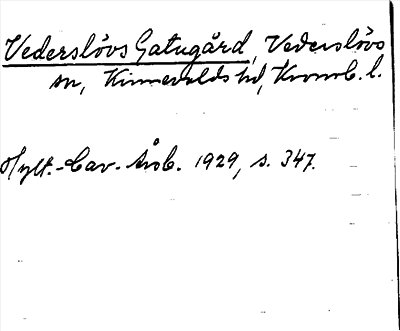 Vederslövs Gatugård, Vederslövs
sn, Kinnevalds hd, Kronob. l.
Hylt.-Cav. Årsb. 1929, s. 347.